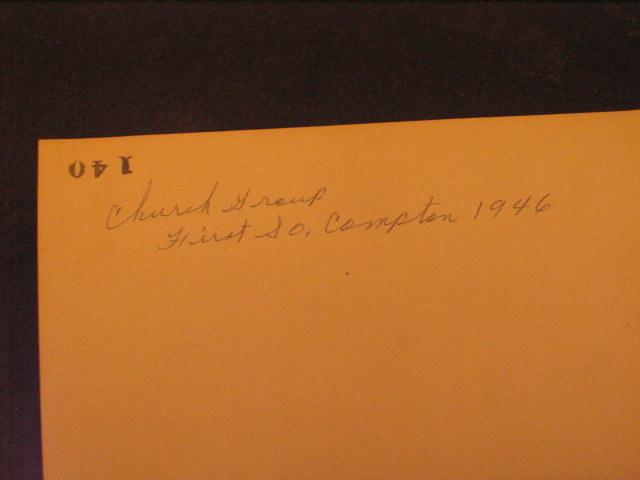 140
Church Group
First So. Compton 1946